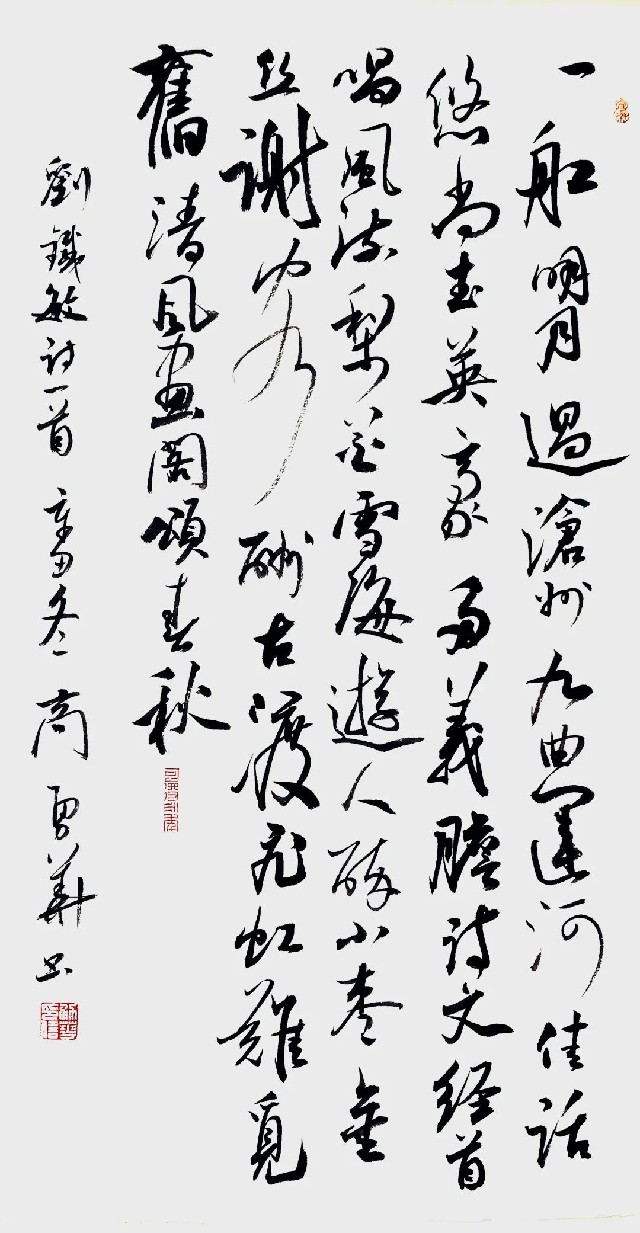 一船明月過滄州九曲運河佳話
悠尚武英豪多義膽詩文經首
唱風流梨花雪海遊人醉小棗金
丝謝客酬古渡飛虹難覓
舊清風畫閣頌春秋
劉鐵敏詩一首辛丑冬商勇華书